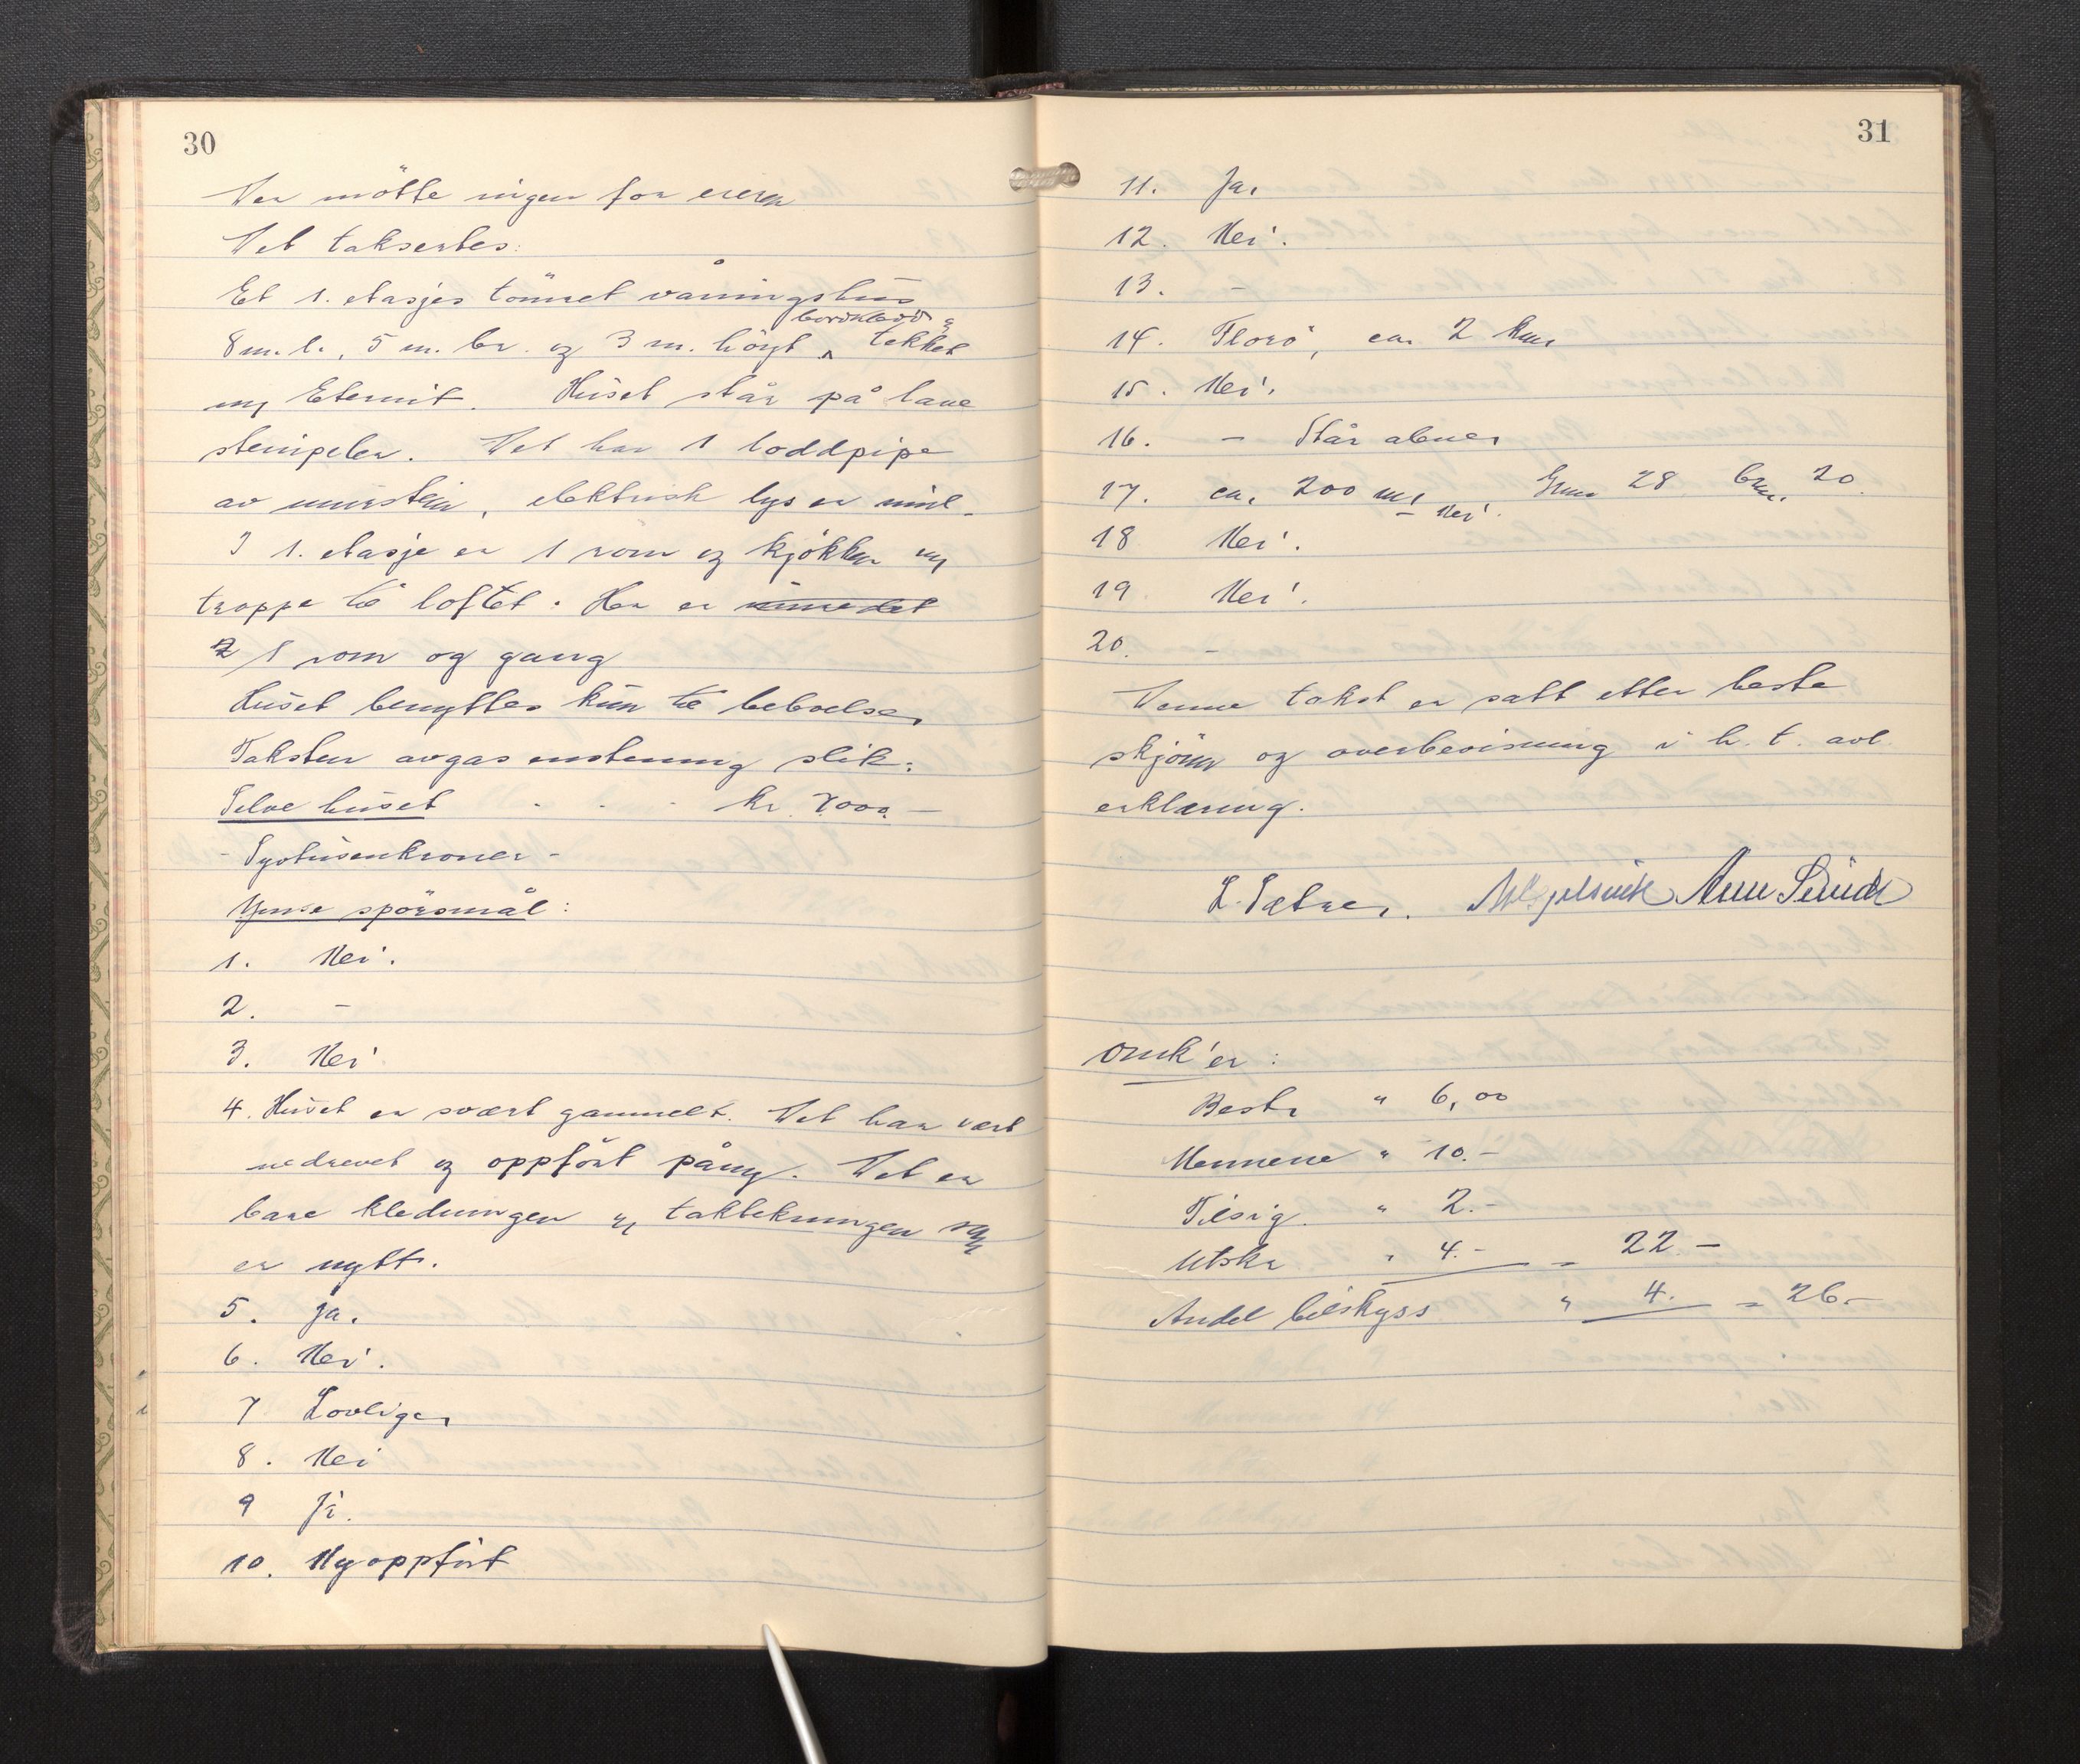 30
Der møtte ingen for eieren
Det taksertes:
Et 1. etasjes tömret våningshus
bordkledd og
8 m. l., 5 m. br. og 3 m. höyt, tekket
m/ Eternit. Huset står på lave
steinpeler. Det har 1 loddpipe
av murstein, elektrisk lys er innl.
I 1. etasje er 1 rom og kjøkken m/
trappe til loftet. Her er innredet
2 1 rom og gang
Huset benyttes kun til beboelse.
Taksten avgas enstemmig slik:
Selve huset . . . kr. 7000.—
- Syvtusenkroner -
Ymse spörsmål:
1. Nei.
2. -
3. Nei
4. Huset er svært gammelt. Det har vært
nedrevet og oppfört påny. Det er
bare kledningen og taktekningen som
er nytt.
5. Ja.
6. Nei.
7 Lovlige.
8. Nei
9 Ja.
10. Nyoppfört
31
11. Ja.
12. Nei.
13. -
14. Florö, ca. 2 km.
15. Nei.
16. - Står alene.
17. ca. 200 m. Gnr. 28 bnr. 20.
- Nei.
18 Nei.
19 Nei.
20. -
Denne takst er satt etter beste
skjönn og overbevisning i h. t. avl.
erklæring.
L. Sætre.
Omk'er:
Bestr " 6,00
Mennene " 10.-
Tilsig. " 2.-
Utskr " 4.- = 22 —
Andel bilskyss " 4. = 26.-